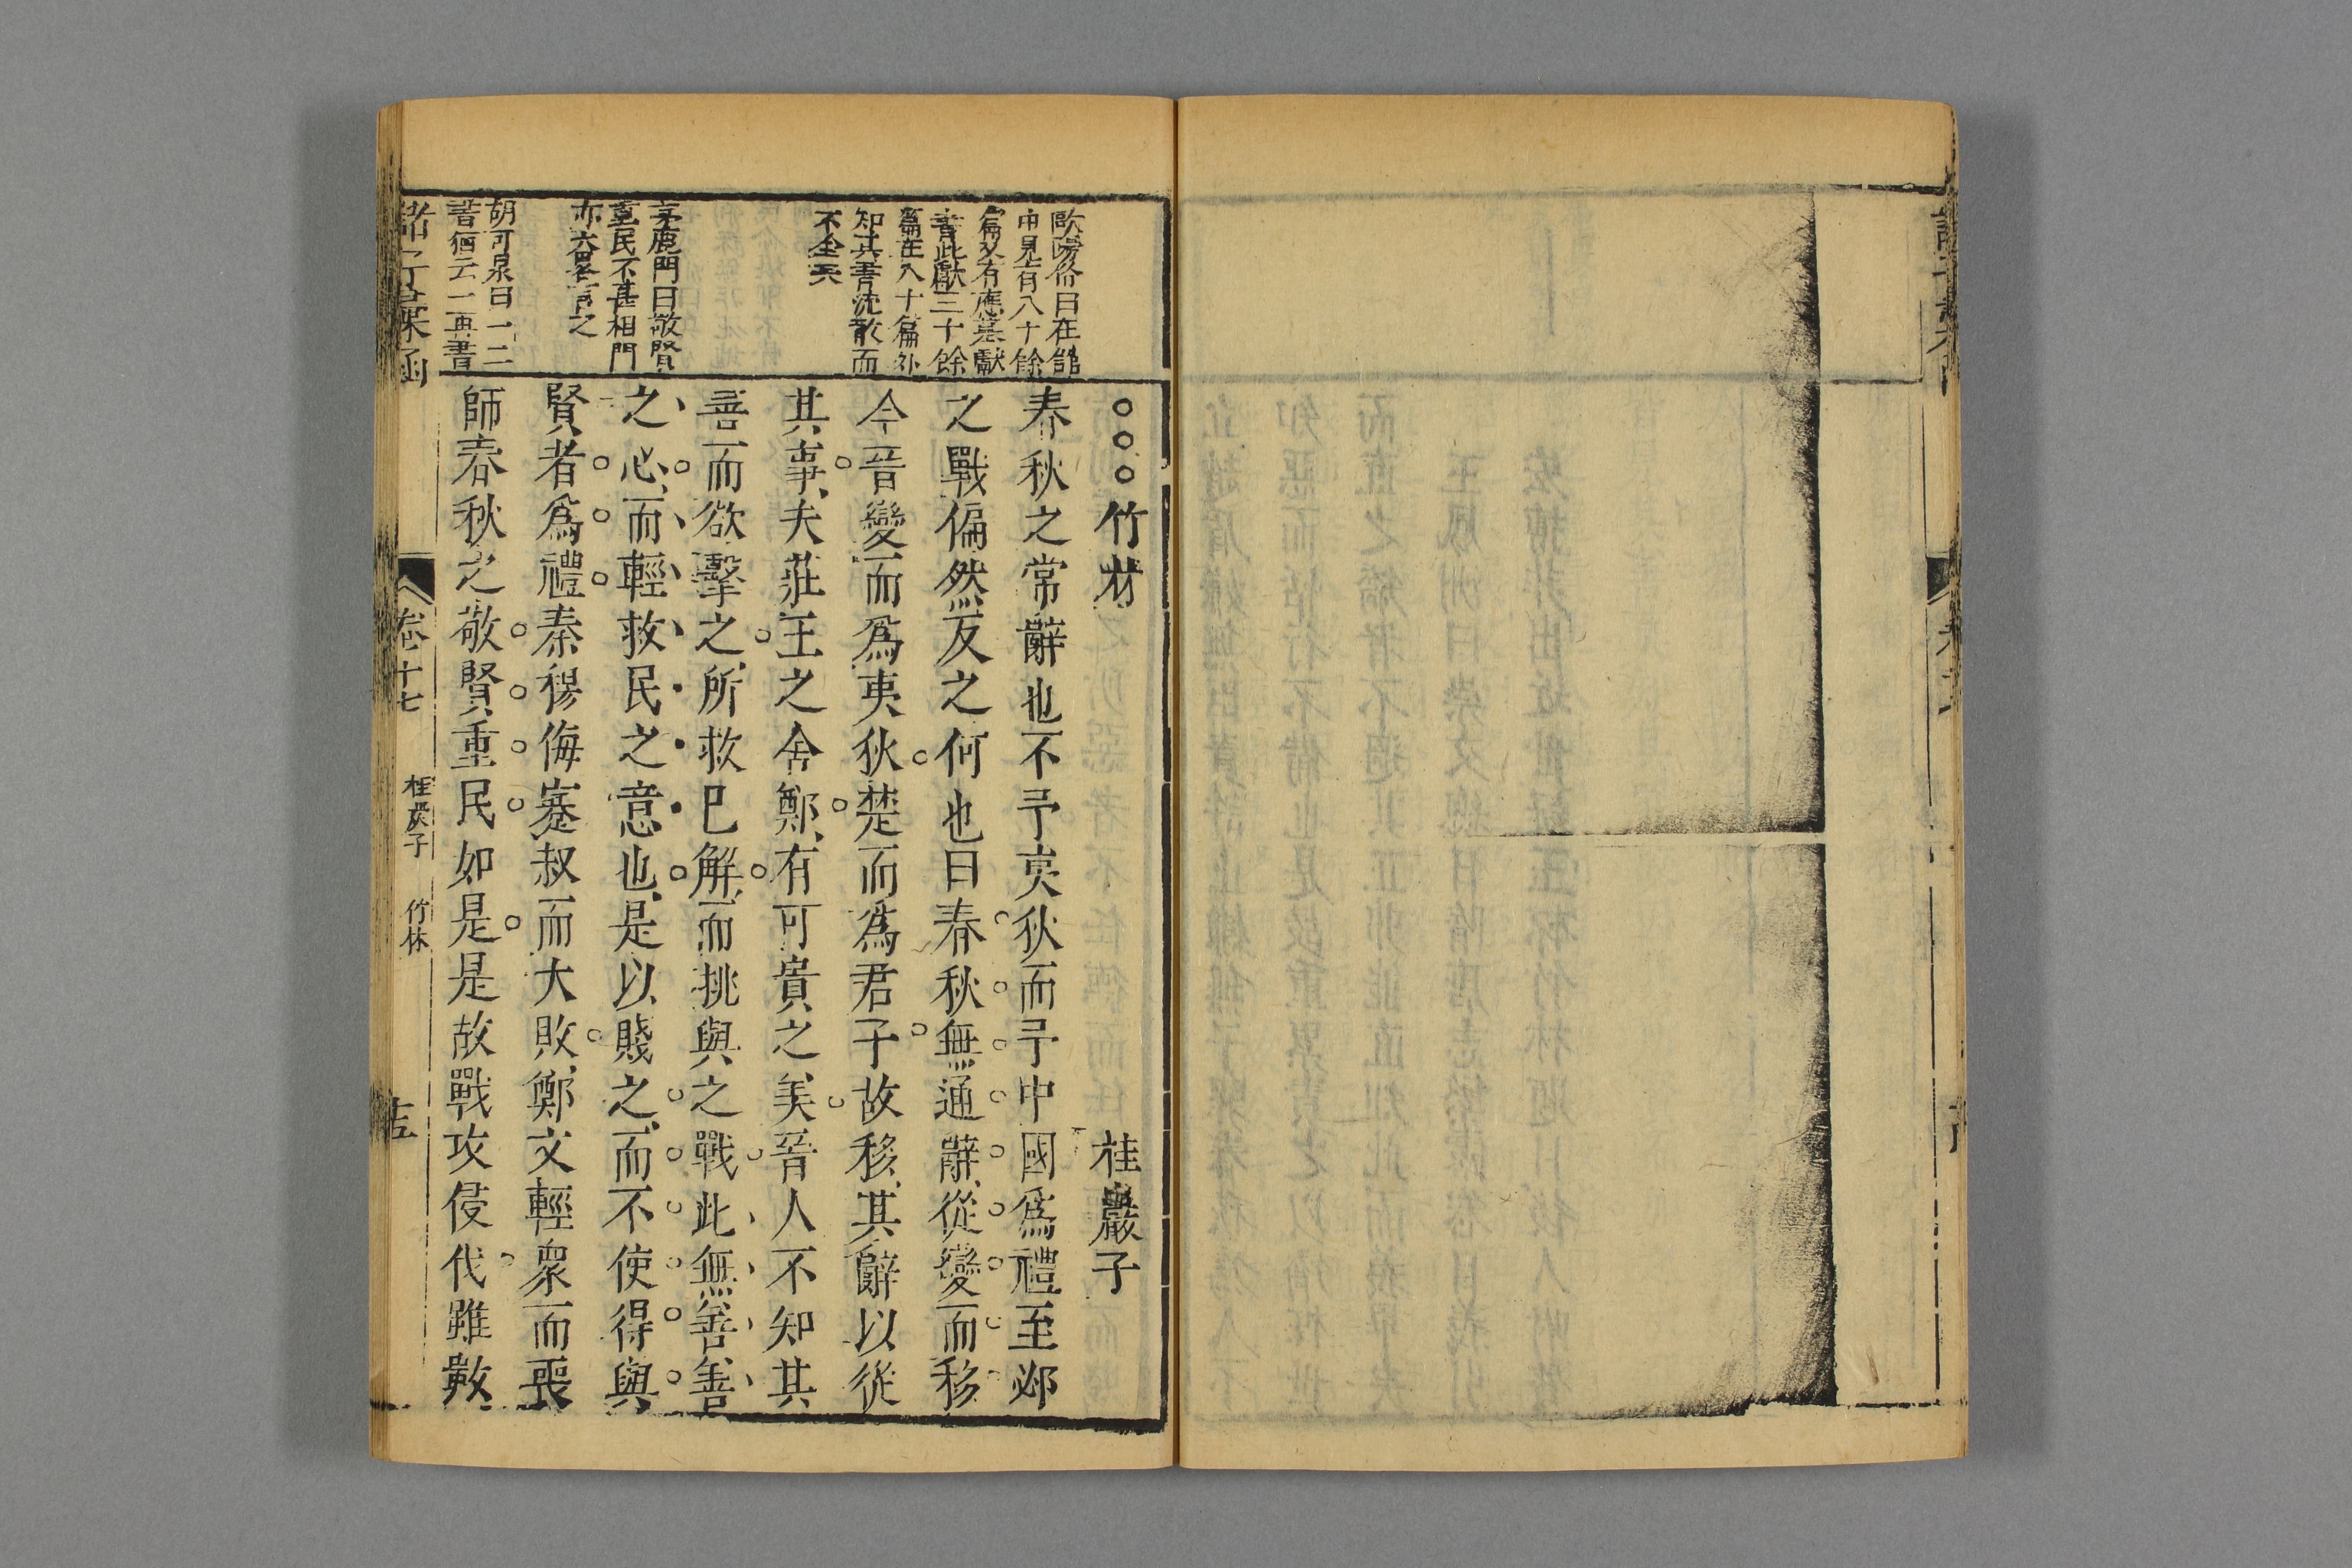 竹林
桂巖子
春秋之常辭也不予夷狄而予中國爲禮至邲
之戰偏然反之何也曰春秋無通辭從變而移
今晉變而爲夷狄楚而爲君子故移其辭以從
其事夫莊王之舍鄭有可貴之美晉人不知其
善而欲擊之所救已解而挑與之戰此無善善
之心而輕救民之意也是以賤之而不使得與
賢者爲禮秦穆侮蹇叔而大敗鄭文輕衆而喪
師春秋之敬賢重民如是是故戰攻侵伐雖數
歐陽修曰在館
中見有八十餘
篇又有應募獻
書此獻三十餘
篇在八十篇外
知其書沈散而
不全矣
茅鹿門曰敬賢
重民不甚相門
亦六畧言之
胡可泉曰一二
書徊云一再書
諸子彙函
卷十七
桂巖子
竹林